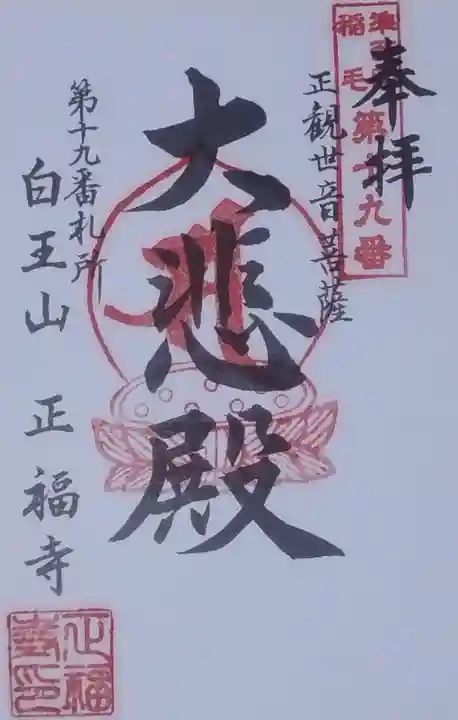 奉拝
準
稲毛
第十九番
正観世音菩薩
大悲殿
第十九番札所
白王山 正福寺
正福
寺印